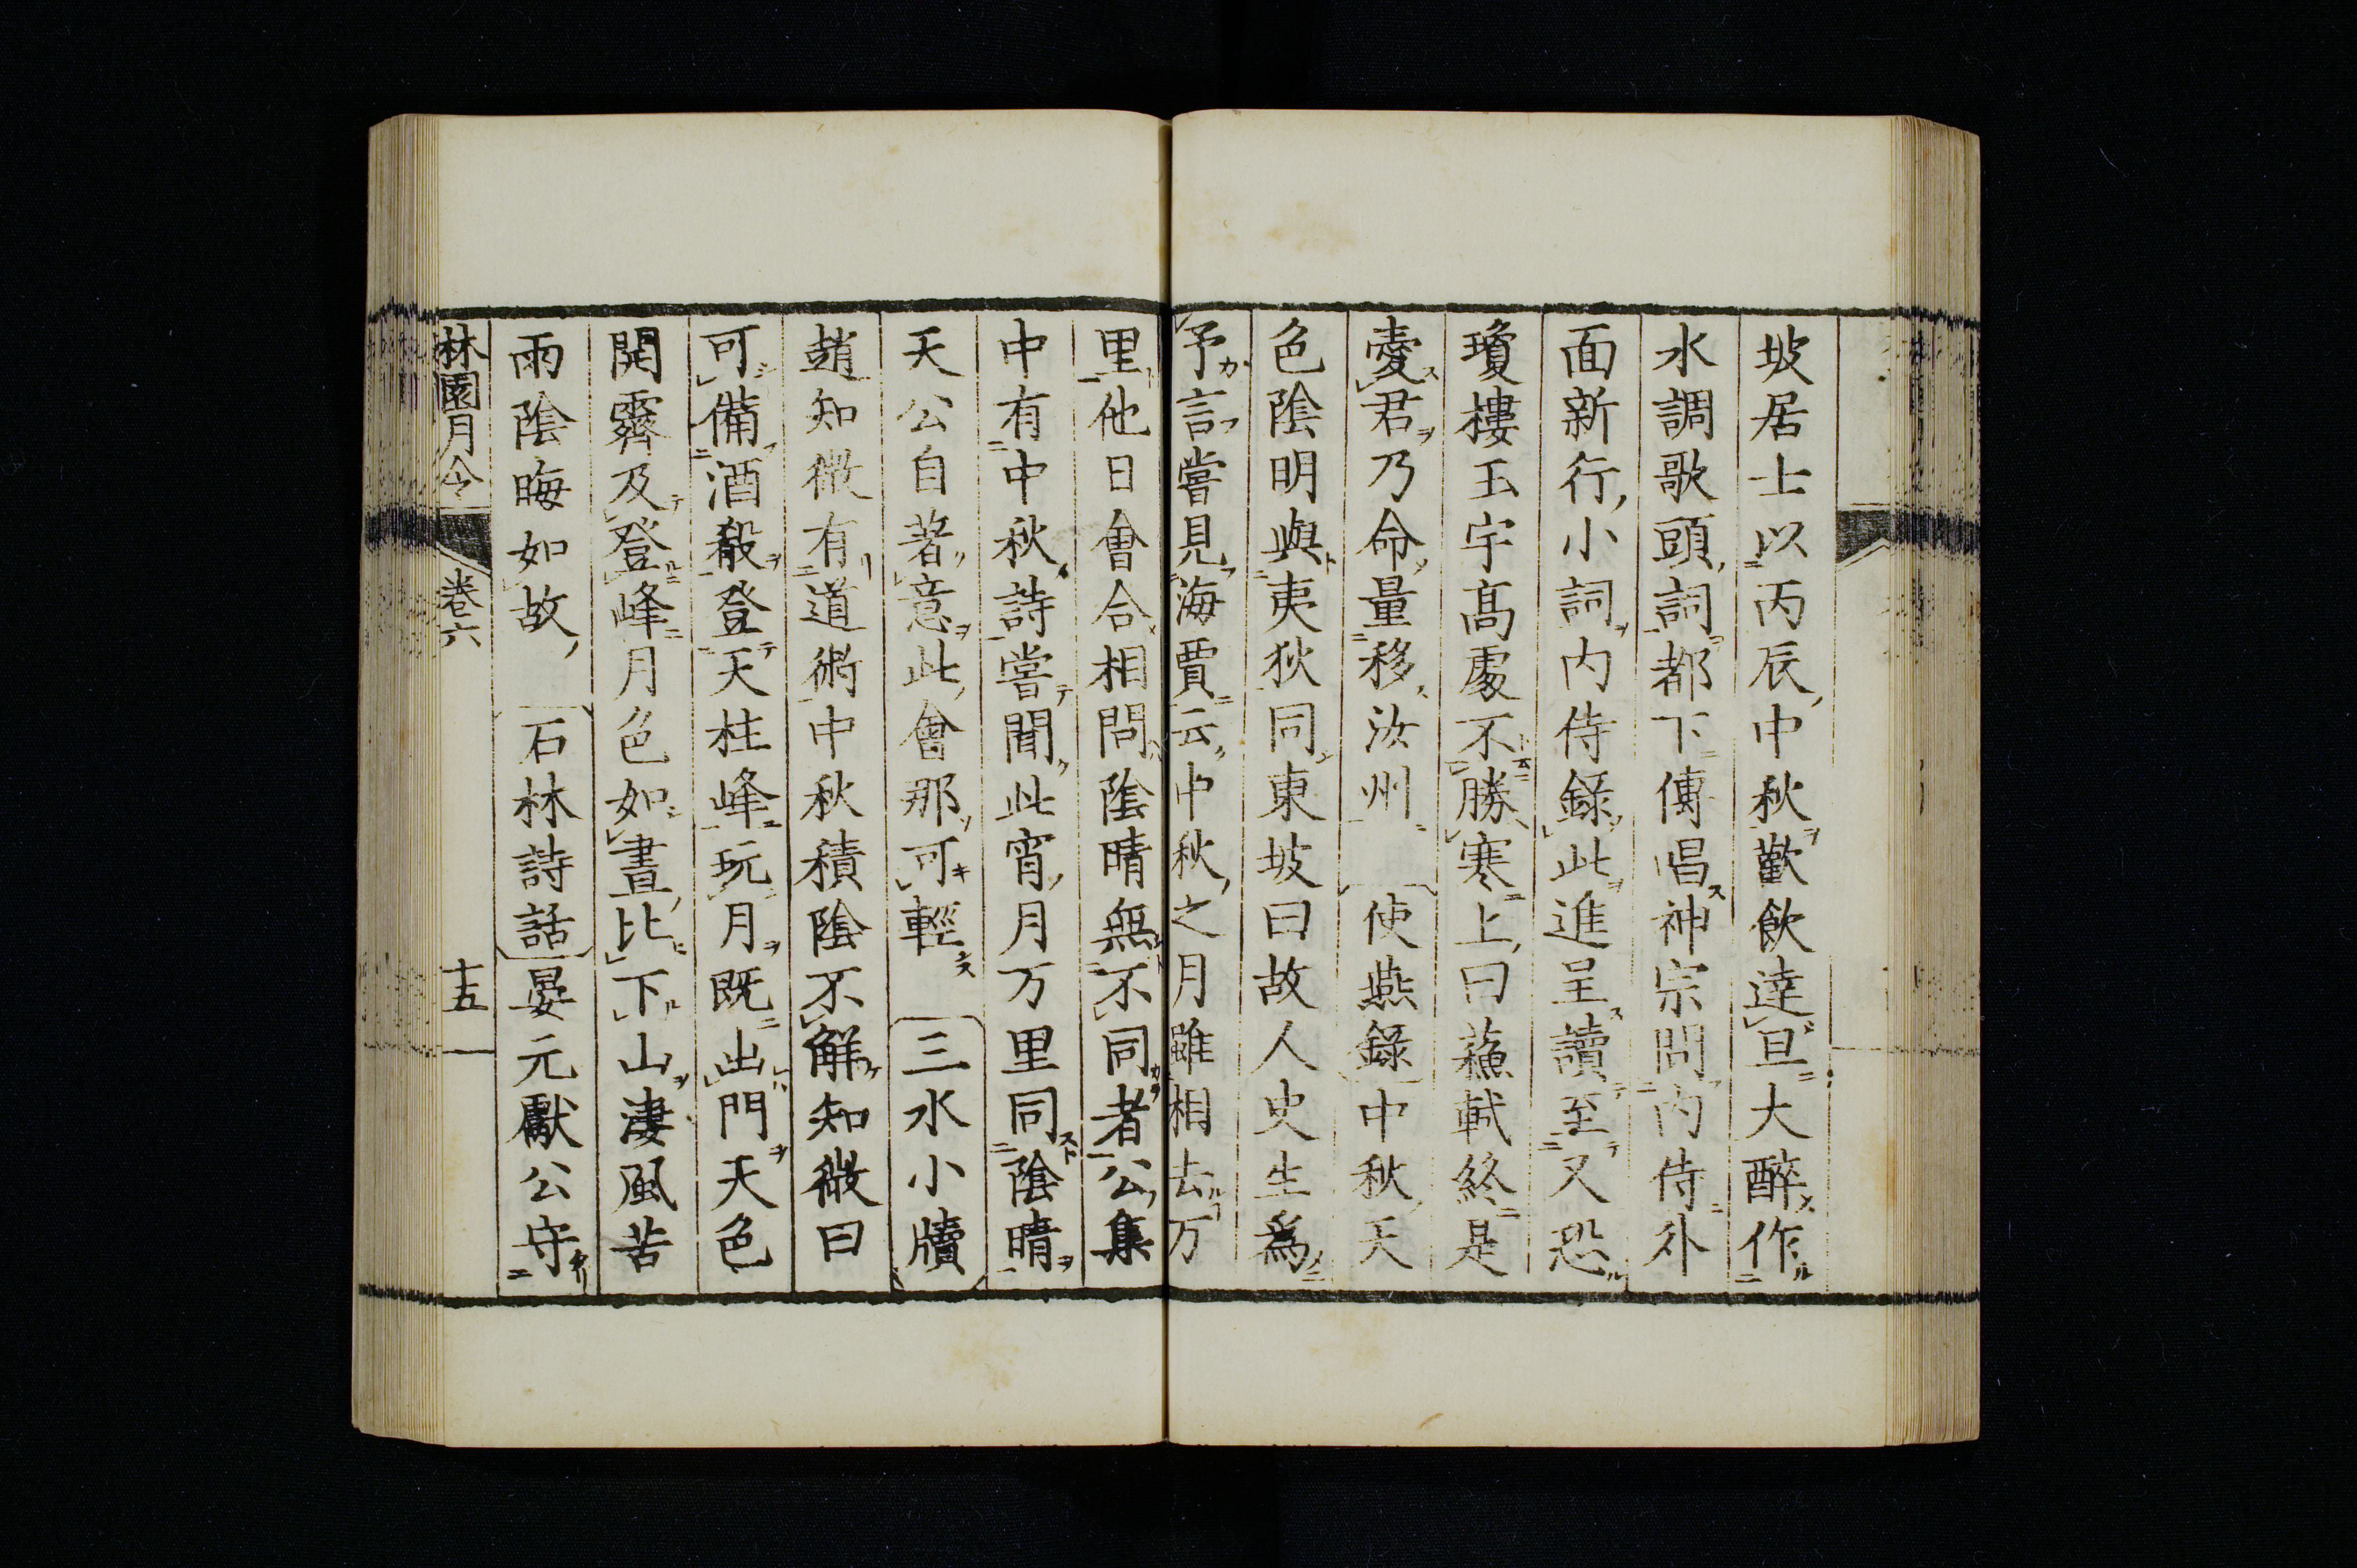 坡居士以丙辰中秋歡飲達旦大醉作
水調歌頭詞都下傳唱神宗問内侍外
面新行小詞内侍錄此進呈讀至又恐
瓊樓玉宇髙處不勝寒上曰蘓軾終是
愛君乃命量移汝州　使燕錄中秋天
色陰明與夷狄同東坡曰故人史生爲
予言嘗見海賈云中秋之月雖相去万
里他日會合相問陰晴無不同者公集
中有中秋詩嘗聞此宵月万里同陰晴
天公自著意此會那可輕　三水小牘
趙知微有道術中秋積陰不解知微曰
可備酒殽登天柱峰玩月既出門天色
開霽及登峰月色如晝比下山淒風苦
雨陰晦如故　石林詩話晏元獻公守
林園月令　卷六　十五